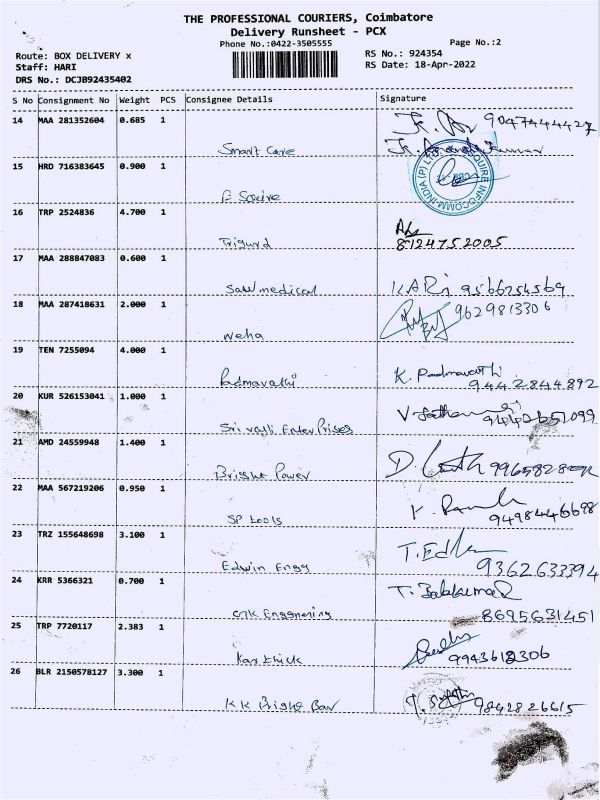 THE PROFESSIONAL COURIERS, Coimbatore
Delivery Runsheet - PCX
Phone No.:0422-3505555
Page No.:2
Route: BOX DELIVERY x
RS No.: 924354
Staff: HARI
RS Date: 18-Apr-2022
DRS No.: DCJB92435402
S No Consignment No Weight PCS Consignee Details Signature
14 MAA 281352604 0.685 1
9047444427
Smart Care
15 HRD 716383645 0.900 1
E Squire
16 TRP 2524836 4.700 1
8124752005
17 MAA 288847083 0.600 1
Saw medical HARi 9566254569
18 MAA 287418631 2.000 1
9629813306
Neha
19 TEN 7255094 4.000 1
Padmavathi K. Padmavathi
9442844892
20 KUR 526153041 1.000 1
Sri valli Enterprises
21 AMD 24559948 1.400 1
Bright Power
22 MAA 567219206 0.950 1
SP tools
23 TRZ 155648698 3.100 1
Edwin Engg
9362633394
24 KRR 5366321 0.700 1
T. Balakumar
8695631451
25 TRP 7720117 2.383 1
Karthick
26 BLR 2150578127 3.300 1
9842826615